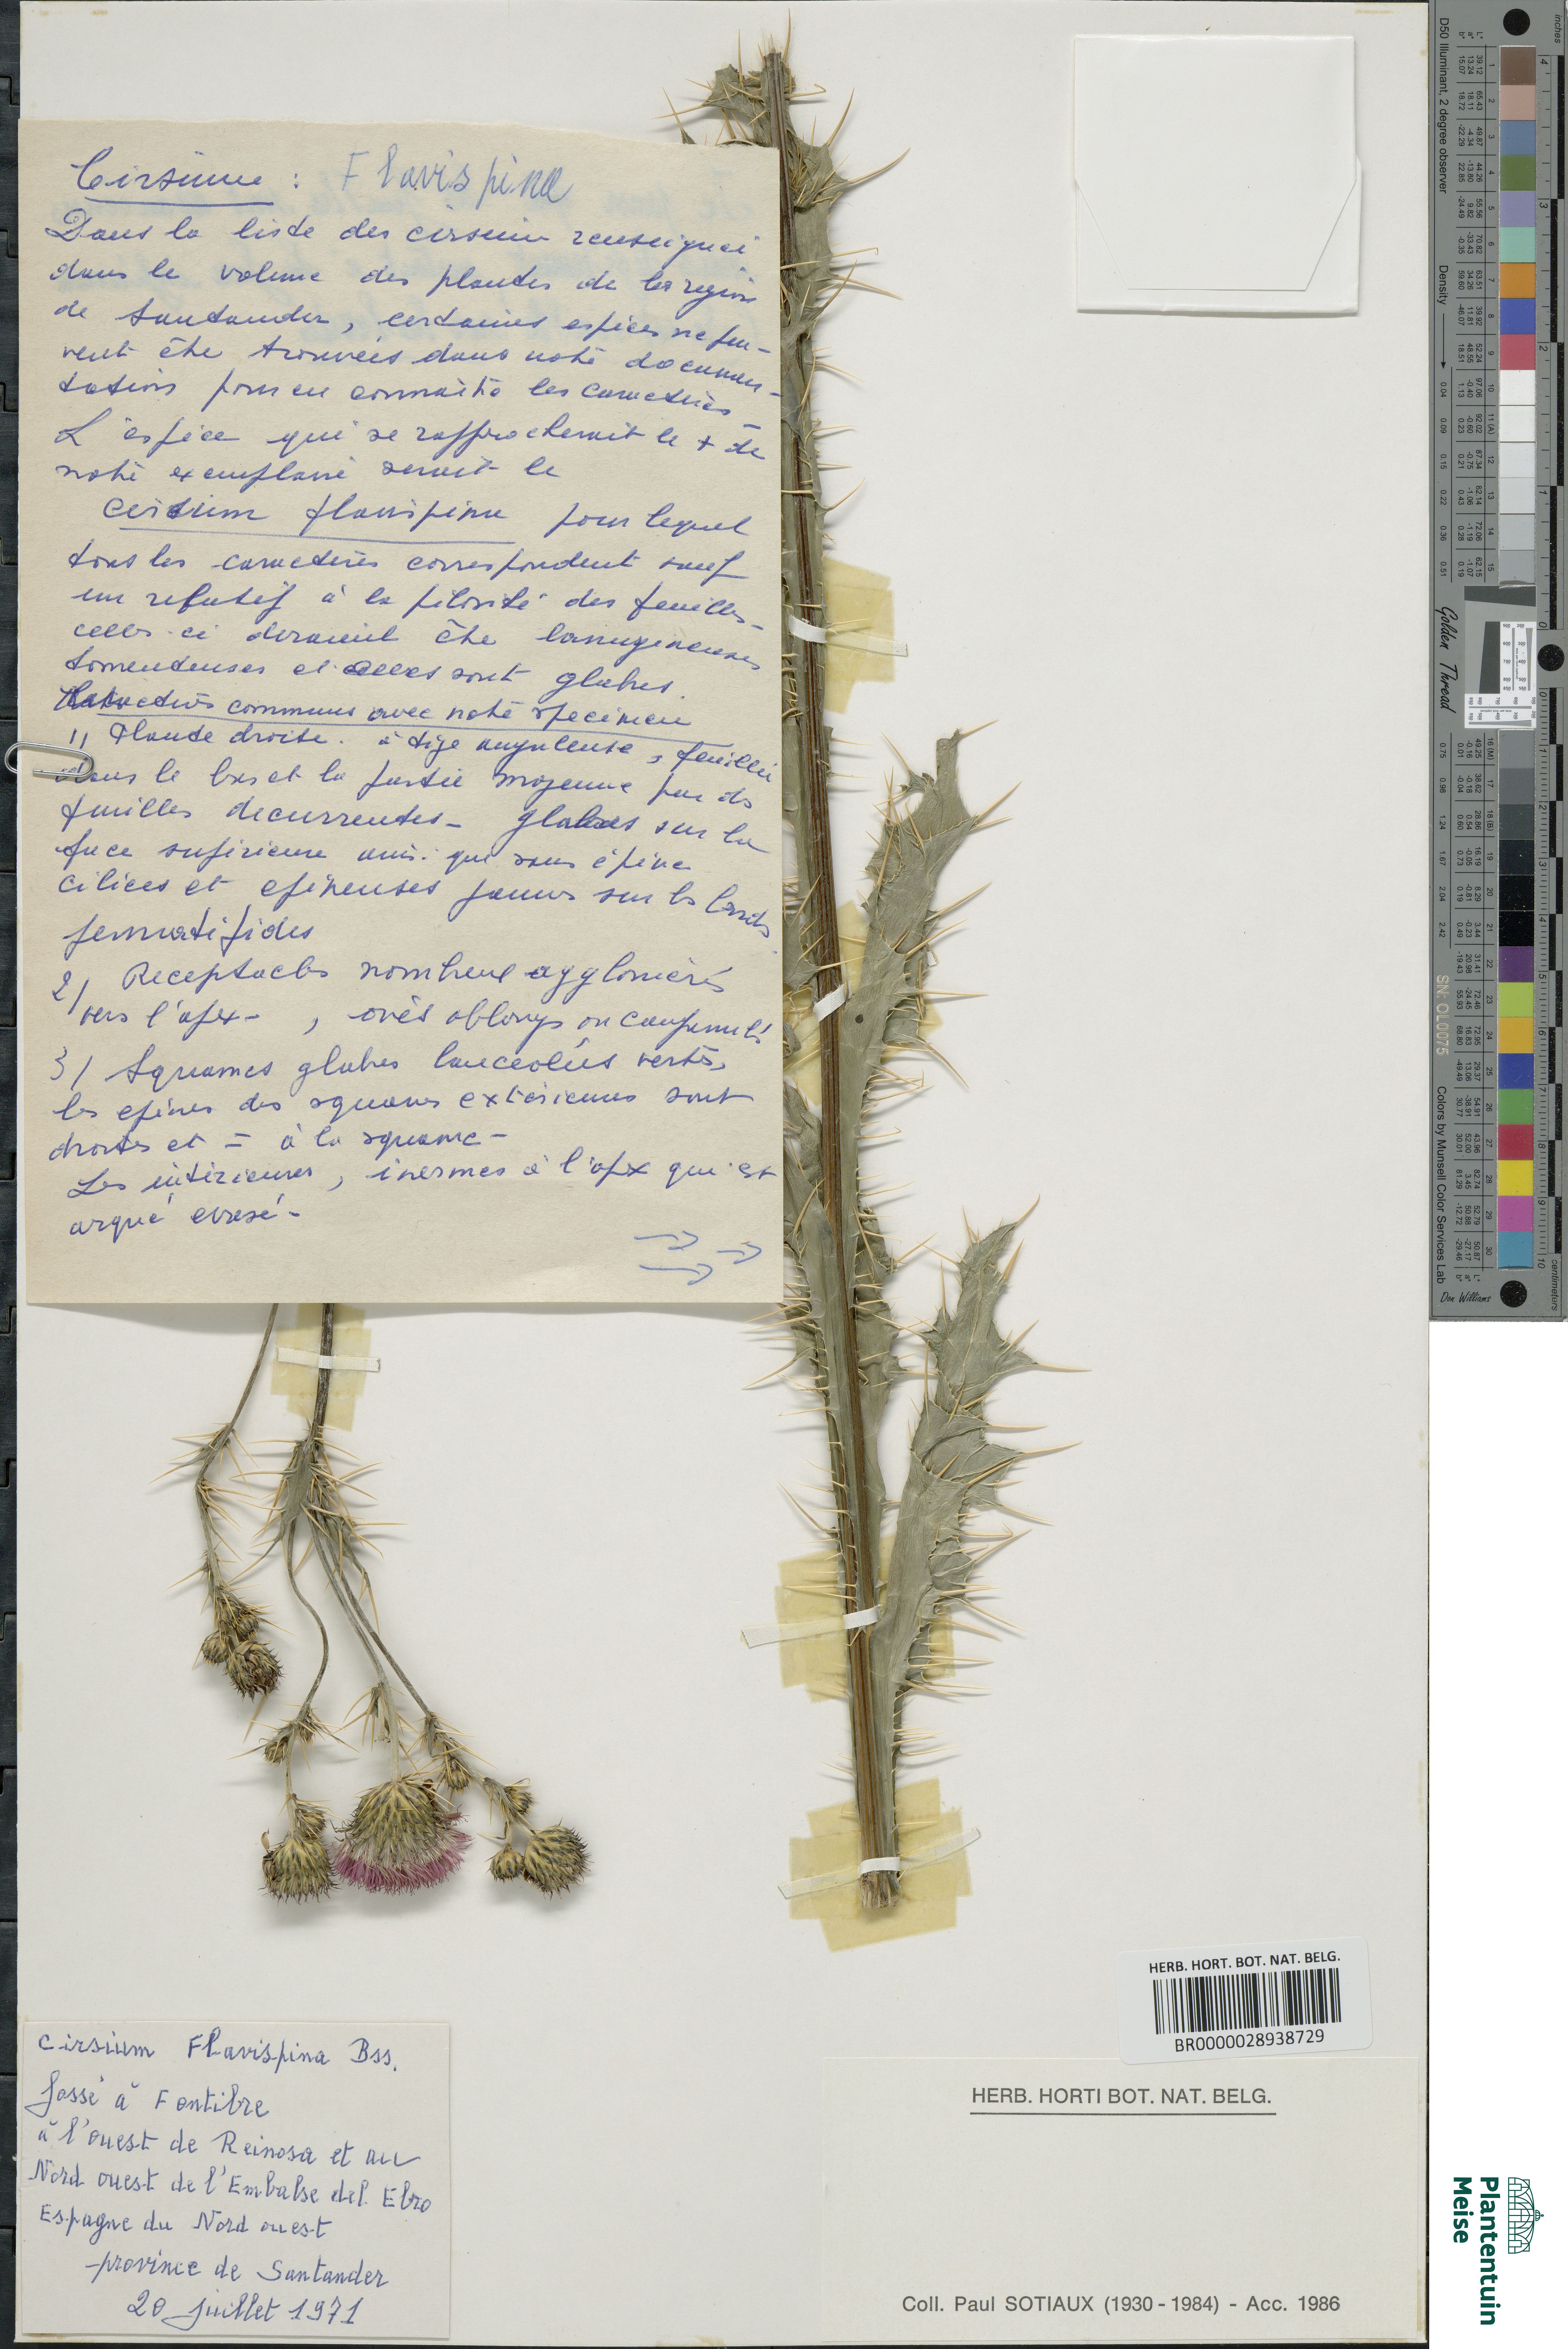 Cirsium : Flavispina
Dans la liste des cirsium renseignés
dans le volume des plantes de la region
de Santander, certaines espèces ne peu-
vent être trouvées dans notre documen-
tation pour en connaître les caractères
L'espèce qui se rapprocherait le + de
notre exemplaire serait le
Cirsium flavispina pour lequel
tous les caractères correspondent sauf
un relatif à la pilosité des feuilles -
celles-ci devraient être lanugineuses
tomenteuses et elles sont glabres.
Caractères communs avec notre specimen
1) Plante droite à tige anguleuse, feuillée
dans le bas et la partie moyenne par des
feuilles decurrentes - glabres sur la
face supérieure ainsi que sans épine
ciliées et epineuses jaunes sur les bords
pennatifides
2) Receptacles nombreux agglomérés
vers l'apex - , ovés oblongs ou campanulés
3) Squames glabres lanceolées vertes,
les epines des squames exterieures sont
droites et = à la squame -
Les intérieures, inermes à l'apex qui est
arqué evasé -
Cirsium Flavispina Bss.
fossé à Fontibre
à l'ouest de Reinosa et au
Nord ouest de l'Embalse del Ebro
Espagne du Nord ouest
province de Santander
20 juillet 1971
HERB. HORT. BOT. NAT. BELG.
BR0000028938729
HERB. HORTI BOT. NAT. BELG.
Coll. Paul SOTIAUX (1930 - 1984) - Acc. 1986
Plantentuin
Meise
D50 Illuminant, 2 degree observer
Density
Golden Thread
SN: OL0075
Colors by Munsell Color Services Lab
Don Williams
inches
centimeters